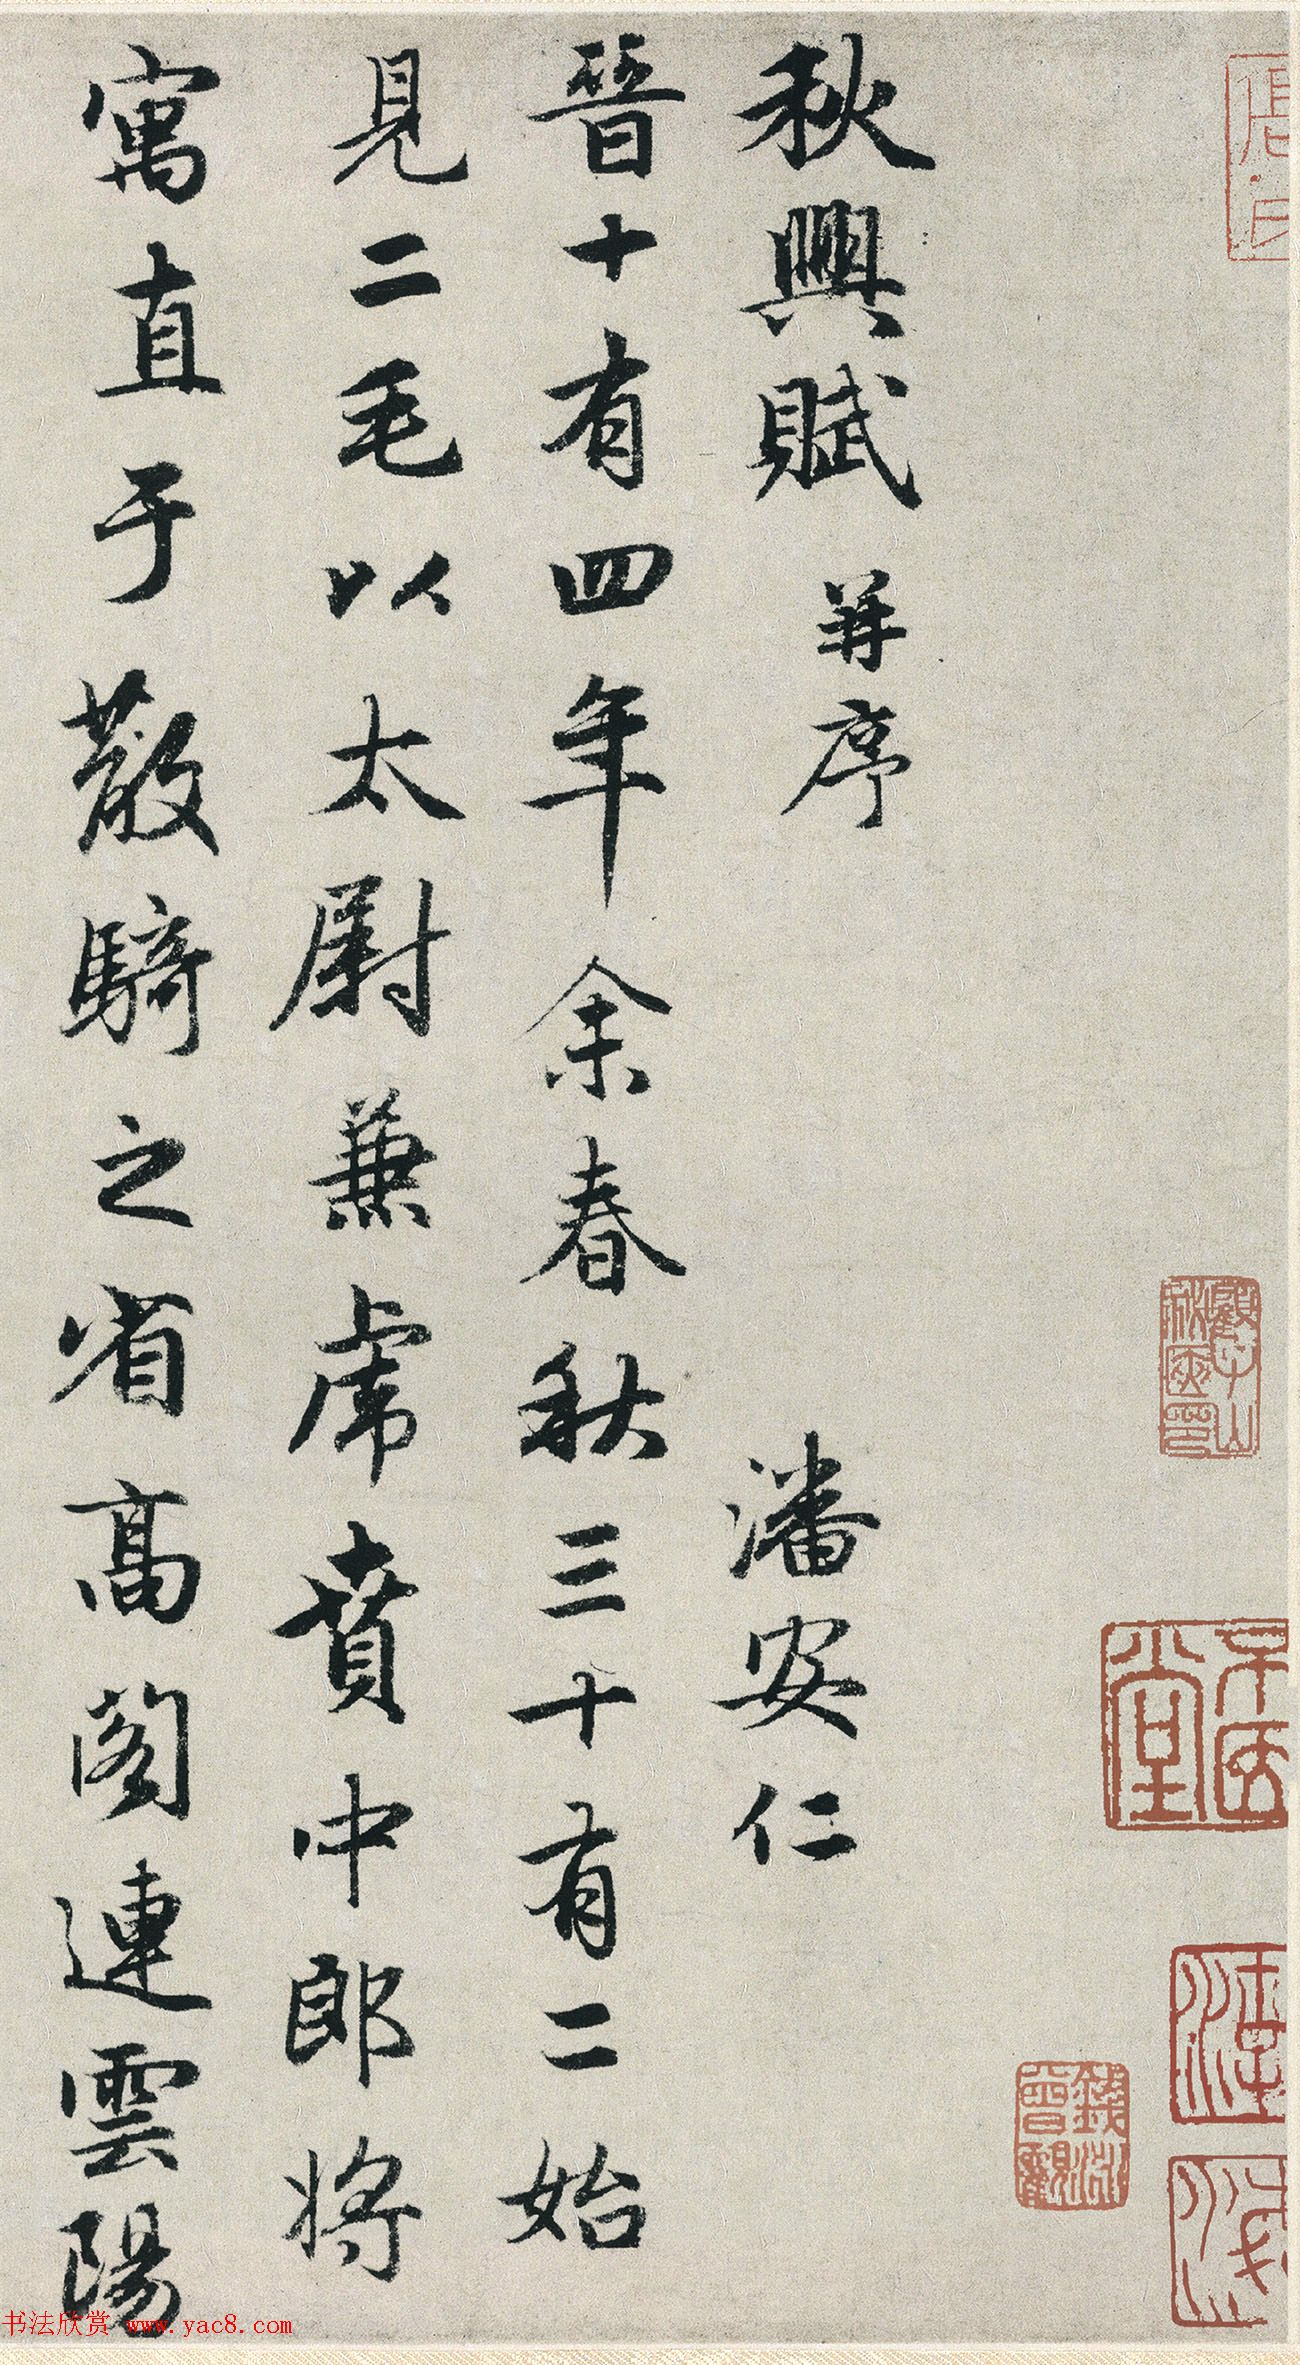 秋興賦 并序 潘安仁
晉十有四年余春秋三十有二始
見二毛以太尉兼虎賁中郎將
寓直于散騎之省高閣連雲陽
书法欣赏 www.yac8.com